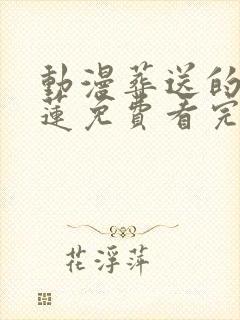 動漫葬送的
蓮免費看完
花浮萍